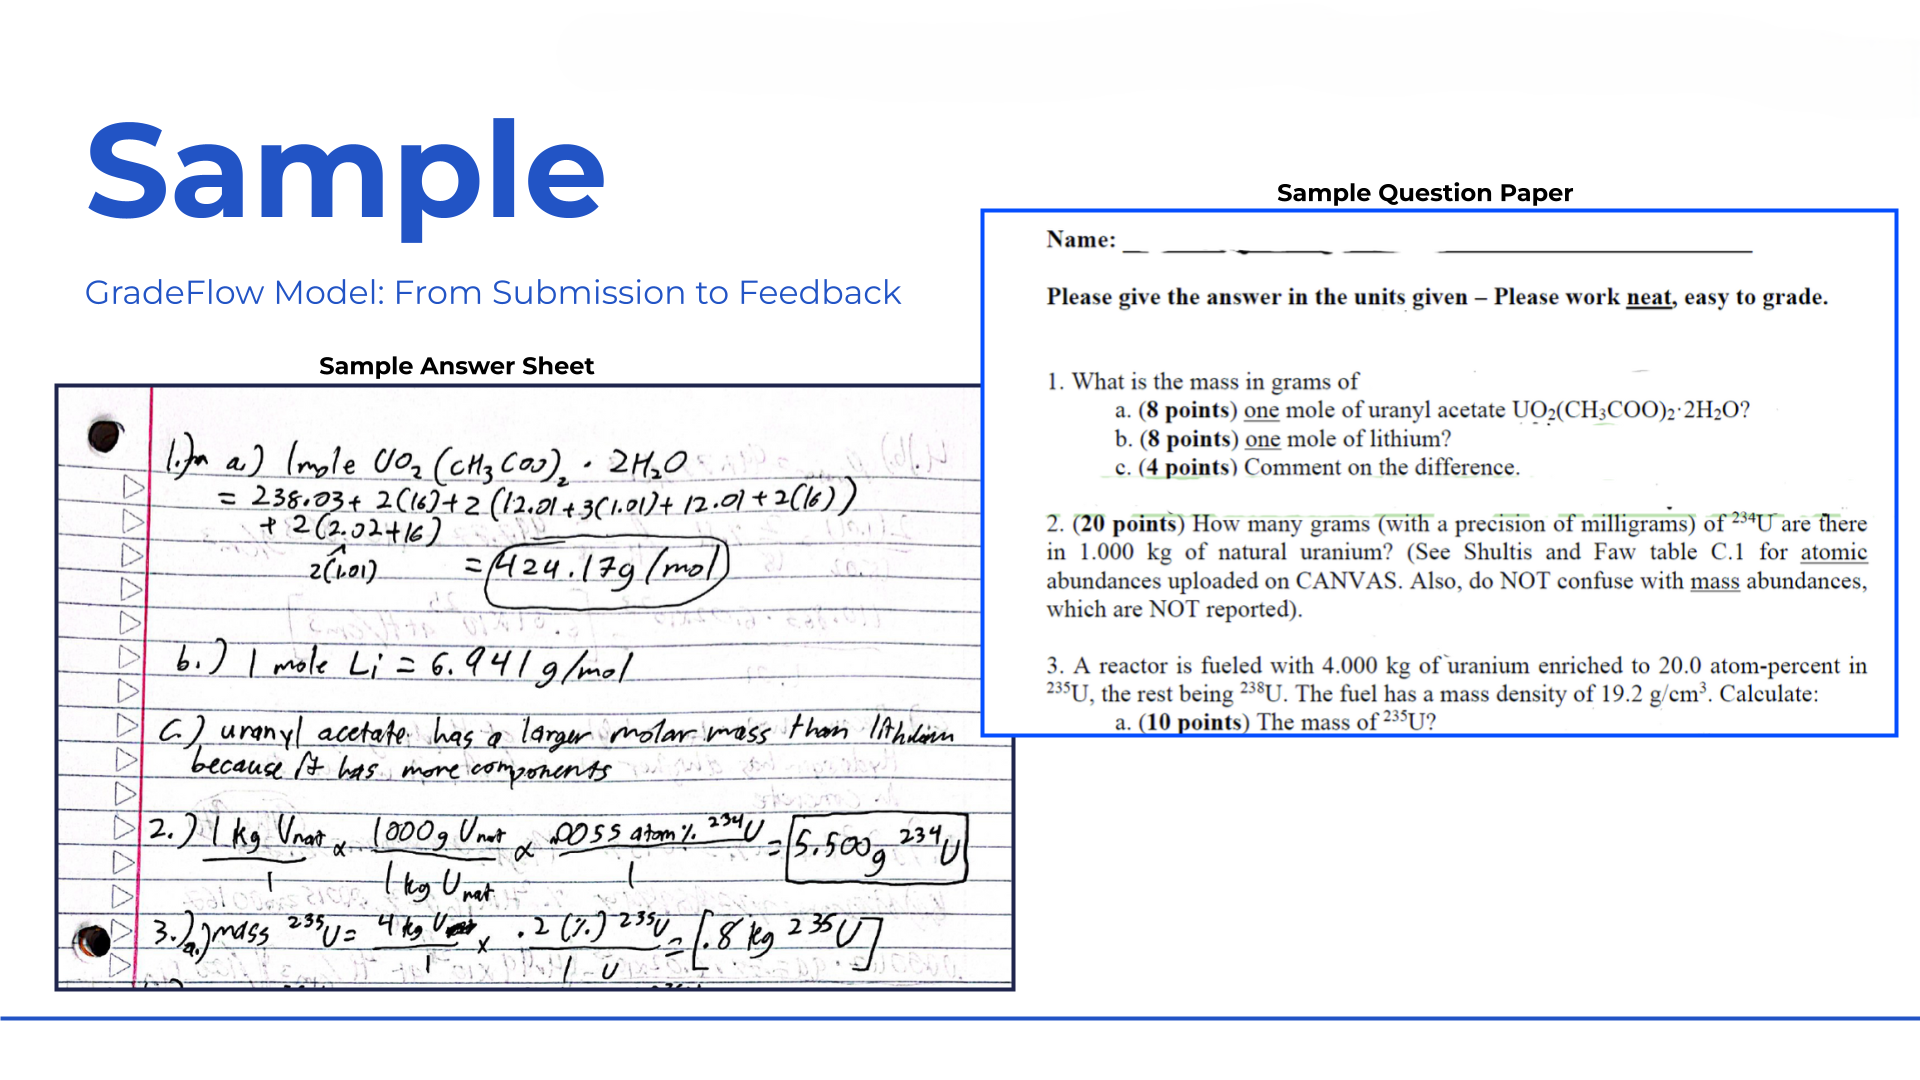 Sample
GradeFlow Model: From Submission to Feedback
Sample Answer Sheet
1.) a.) 1mole UO₂ (CH₃COO)₂ · 2H₂O
= 238.03 + 2(16) + 2 (12.01 + 3(1.01) + 12.01 + 2(16))
+ 2 (2.02+16)
2(1.01)
= 424.17g/mol
b.) 1 mole Li = 6.941 g/mol
C.) uranyl acetate has a larger molar mass than lithium
because it has more components
2.) 1 kg Unat / 1 x 1000g Unat / 1 kg Unat x .0055 atom % ²³⁴U / 1 = 5.500g ²³⁴U
3.) a.) mass ²³⁵U = 4 kg U / 1 x .2 (%) ²³⁵U / 1 - U = [.8 kg ²³⁵U]
Sample Question Paper
Name:
Please give the answer in the units given – Please work neat, easy to grade.
1. What is the mass in grams of
a. (8 points) one mole of uranyl acetate UO₂(CH₃COO)₂·2H₂O?
b. (8 points) one mole of lithium?
c. (4 points) Comment on the difference.
2. (20 points) How many grams (with a precision of milligrams) of ²³⁴U are there
in 1.000 kg of natural uranium? (See Shultis and Faw table C.1 for atomic
abundances uploaded on CANVAS. Also, do NOT confuse with mass abundances,
which are NOT reported).
3. A reactor is fueled with 4.000 kg of uranium enriched to 20.0 atom-percent in
²³⁵U, the rest being ²³⁸U. The fuel has a mass density of 19.2 g/cm³. Calculate:
a. (10 points) The mass of ²³⁵U?